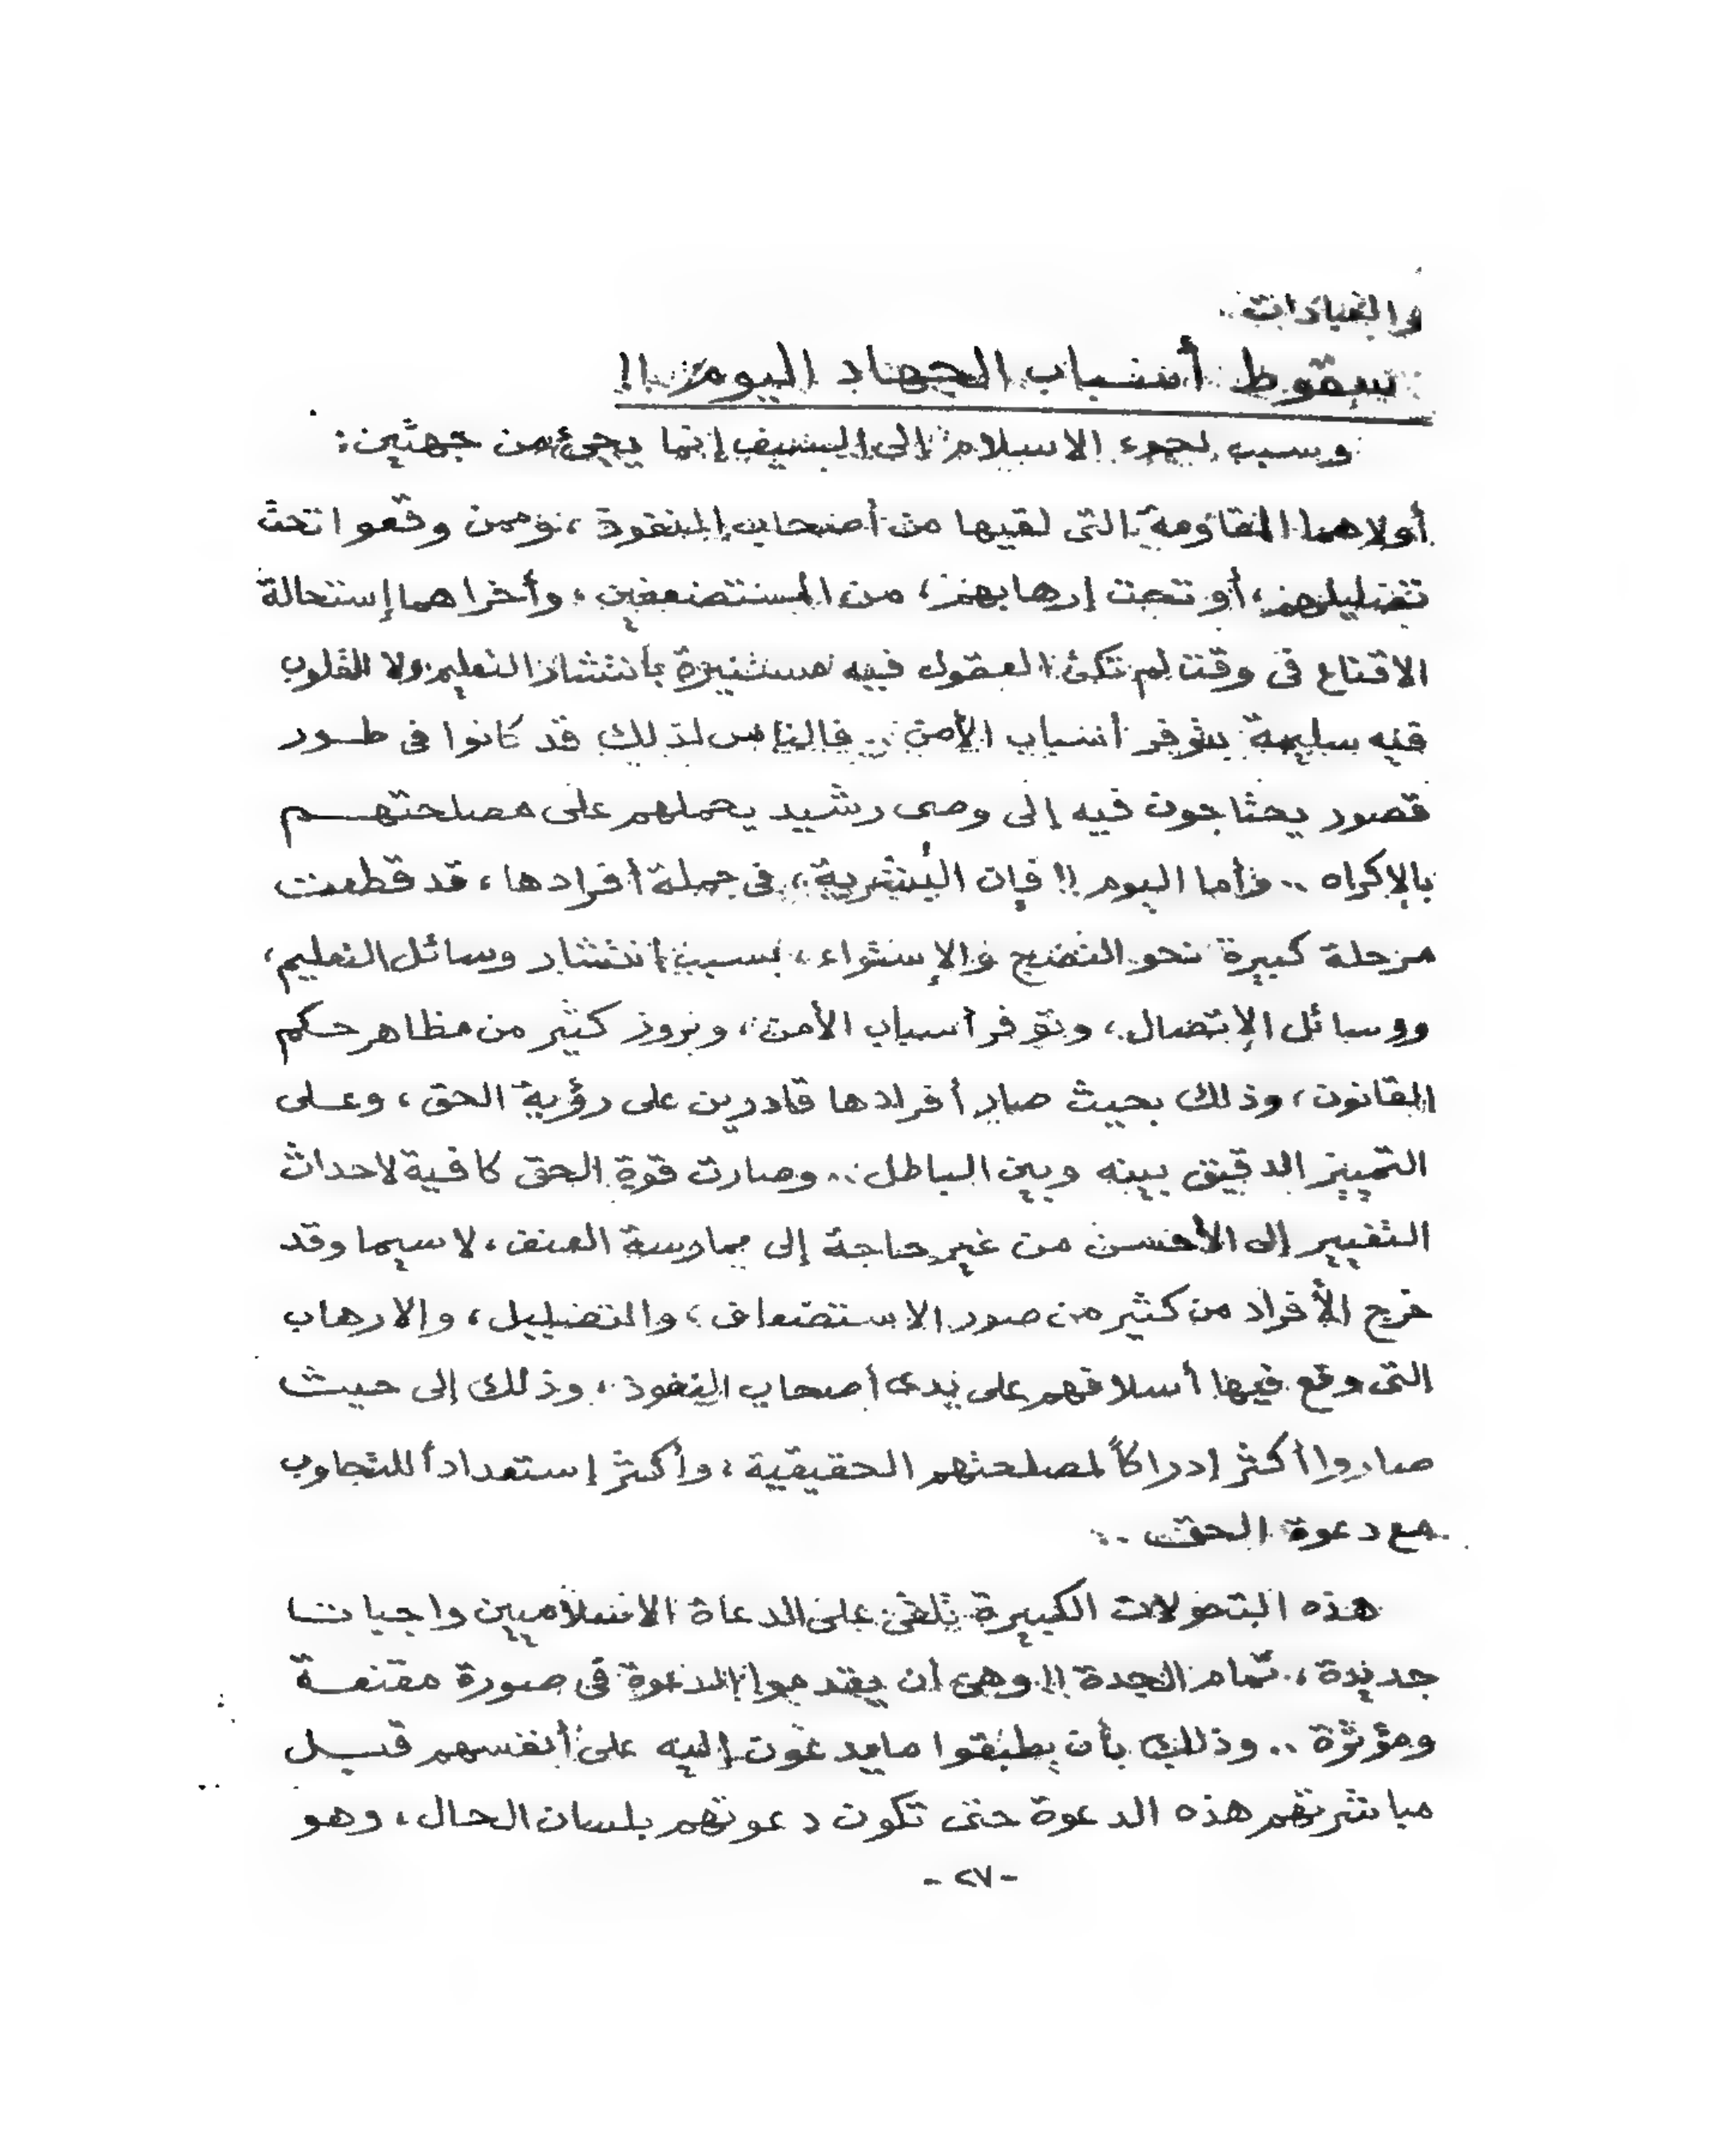 والعبادات..
سقوط أسباب الجهاد اليوم !!
وسبب لجوء الاسلام إلى السيف إنما يجئ من جهتين:
أولاهما المقاومة التى لقيها من أصحاب النفوذ، وممن وقعوا تحت
تضليلهم، أو تحت إرهابهم، من المستضعفين، وأخراهما إستحالة
الاقتاع فى وقت لم تكن العقول فيه مستنيرة بانتشار التعليم ولا القلوب
فيه سليمة بتوفر أسباب الأمن .. فالناس لذلك قد كانوا فى طور
قصور يحتاجون فيه إلى وصى رشيد يحملهم على مصلحتهم
بالإكراه .. وأما اليوم !! فإن البشرية، فى جملة أفرادها، قد قطعت
مرحلة كبيرة نحو النضج والإستواء، بسبب إنتشار وسائل التعليم،
ووسائل الإتصال، وتوفر أسباب الأمن، وبروز كثير من مظاهر حكم
القانون، وذلك بحيث صار أفرادها قادرين على رؤية الحق، وعلى
التمييز الدقيق بينه وبين الباطل .. وصارت قوة الحق كافية لاحداث
التغيير إلى الأحسن من غير حاجة إلى ممارسة العنف، لاسيما وقد
خرج الأفراد من كثير من صور الاستضعاف، والتضليل، والارهاب
التى وقع فيها أسلافهم على يدى أصحاب النفوذ، وذلك إلى حيث
صاروا أكثر إدراكاً لمصلحتهم الحقيقية، وأكثر إستعداداً للتجاوب
مع دعوة الحق ..
هذه التحولات الكبيرة تلقى على الدعاة الاسلاميين واجبات
جديدة، تمام الجدة !! وهى ان يقدموا الدعوة فى صورة مقنعة
ومؤثرة .. وذلك بأن يطبقوا مايدعون إليه على أنفسهم قبل
مباشرتهم هذه الدعوة حتى تكون دعوتهم بلسان الحال، وهو
- ٢٧ -